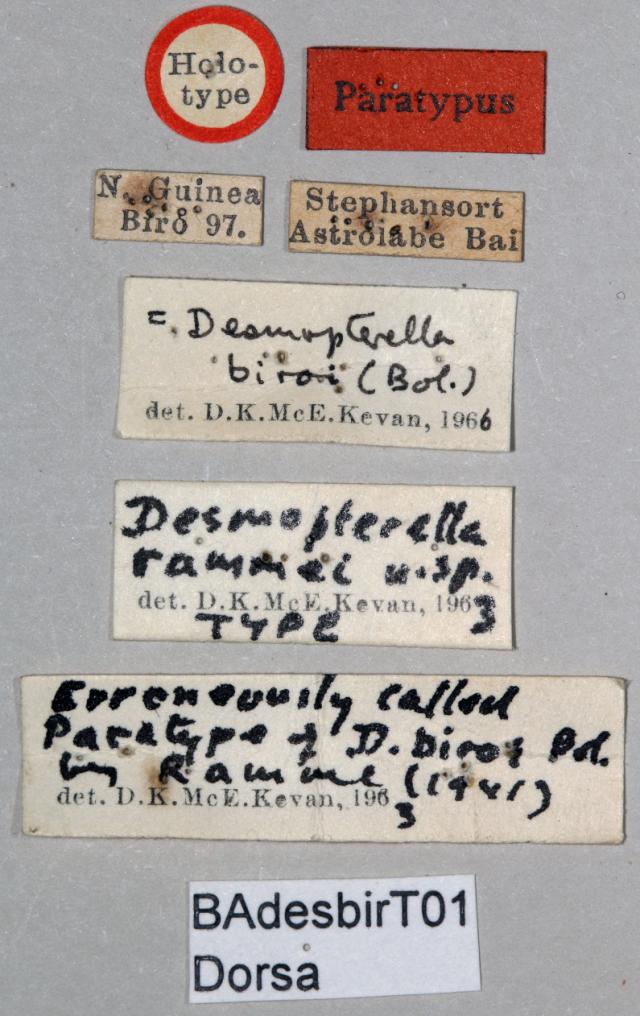 Holo-
type
Paratypus
N. Guinea
Biró 97.
Stephansort
Astrolabe Bai
= Desmopterella
biroi (Bol.)
det. D.K.McE.Kevan, 1966
Desmopterella
rammei n.sp.
det. D.K.McE.Kevan, 1963
TYPE
Erroneously called
Paratype of D. biroi Bol.
by Ramme (1941)
det. D.K.McE.Kevan, 1963
BAdesbirT01
Dorsa